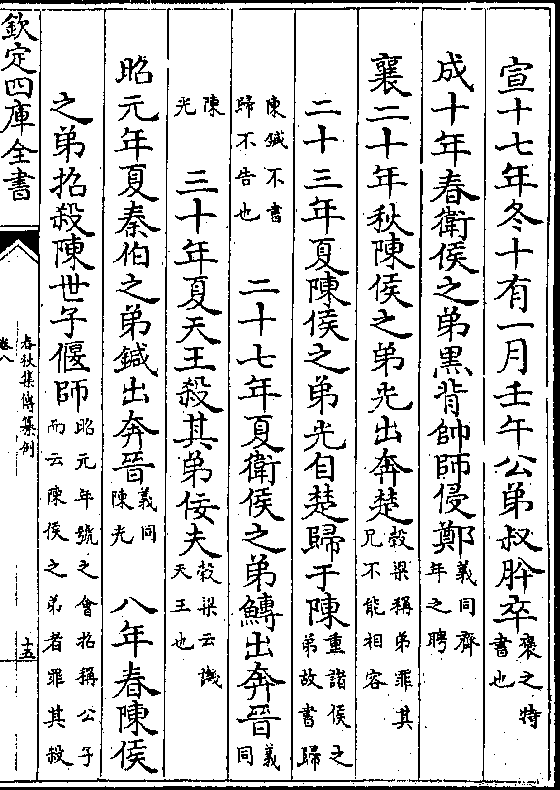 宣十七年冬十有一月壬午公弟叔肸卒褒之特書也
成十年春衛侯之弟黒背帥師侵鄭義同齊年之聘
襄二十年秋陳侯之弟光出奔楚穀梁稱弟罪其兄不能相容
二十三年夏陳侯之弟光自楚歸于陳重諸侯之弟故書歸
陳鍼不書歸不告也 二十七年夏衛侯之弟鱄出奔晉義同
陳光 三十年夏天王殺其弟佞夫穀梁云譏天王也
昭元年夏秦伯之弟鍼出奔晉義同陳光 八年春陳侯
之弟招殺陳世子偃師昭元年號之會招稱公子而云陳侯之弟者罪其殺
欽定四庫全書
春秋集傳纂例
卷八
十五